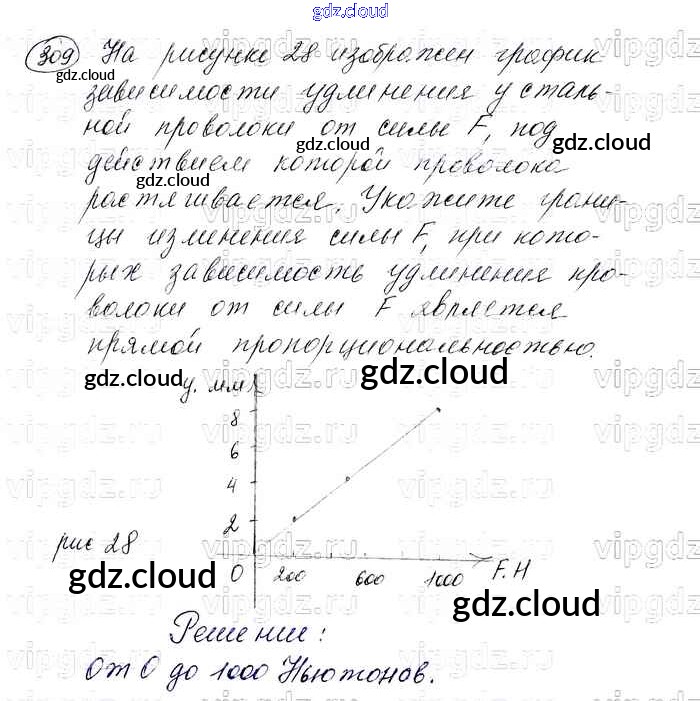 gdz.cloud
309 На рисунке 28 изображен график
gdz.cloud
зависимости удлинения y сталь-
ной проволоки от силы F, под
gdz.cloud
действием которой проволока
gdz.cloud
растягивается. Укажите грани-
gdz.cloud
цы изменения силы F, при кото-
рых зависимость удлинения про-
волоки от силы F является
прямой пропорциональностью.
gdz.cloud
gdz.cloud
y, мм
8
6
4
2
рис 28
gdz.cloud
0 200 600 1000 F, H
gdz.cloud
Решение:
От 0 до 1000 Ньютонов.